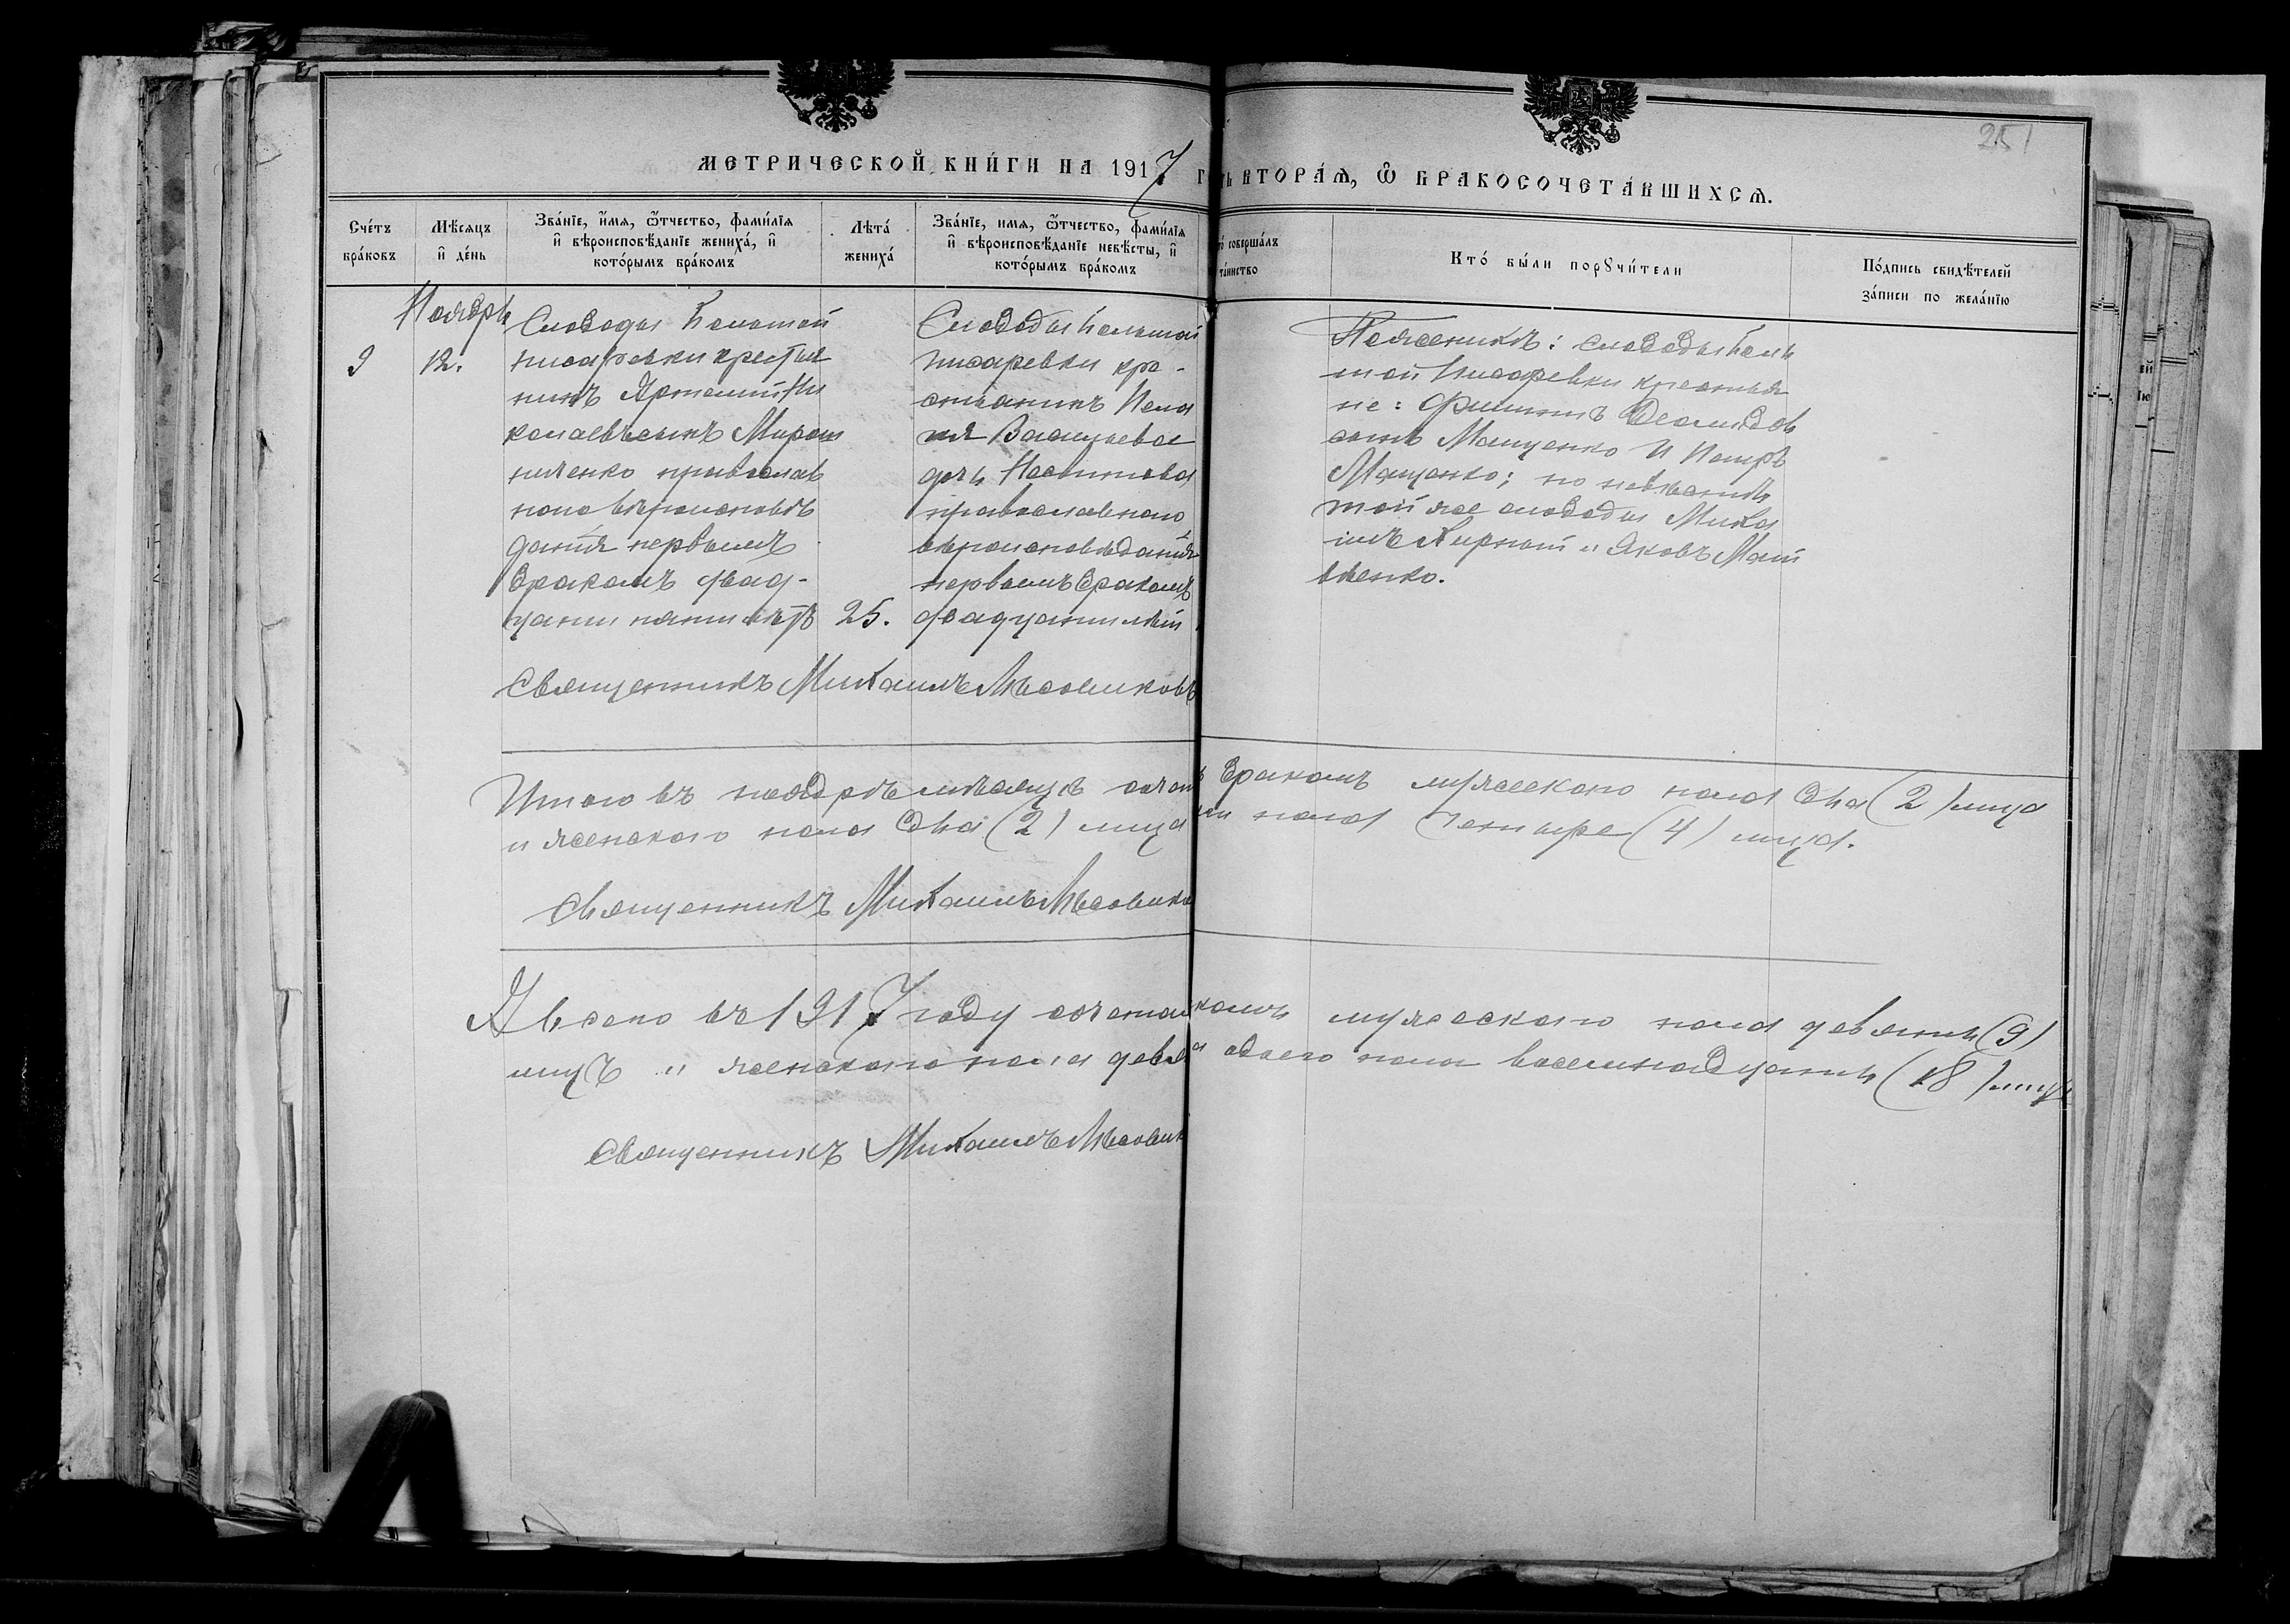 251
МЕТРИЧЕСКОЙ КНИ́ГИ НА 1917 Г
ТЬ ВТОРА́Ѧ, Ѿ БРАКОСОЧЕТА́ВШИХСѦ.
Сче́тъ бра́ковъ
Мѣ́сяцъ и҆ де́нь
Зва́нїе, и҆́мя, ѻ҆́тчество, фами́лїя и҆ вѣроисповѣ́данїе жениха́, и҆ кото́рымъ бра́комъ
Лѣта́ жениха́
Зва́нїе, имя, ѻ҆́тчество, фами́лїя и҆ вѣроисповѣ́данїе невѣ́сты, и҆ кото́рымъ бра́комъ
то́ соверша́лъ
та́инство
Кто́ бы́ли порꙋчи́тели
По́дпись свидѣ́телей за́писи по жела́нїю
Ноябрь
9
12.
Слободы Большой
Писаревки крестья
нинъ Артемій Ни
колаевъ сынъ Мирош
ниченко православ
наго вѣроисповѣ
данія первымъ
бракомъ двад-
цати пяти лѣтъ
25.
Слободы Большой
Писаревки кре-
стьянинъ
Васильева
дочь
православнаго
вѣроисповѣданія
первымъ бракомъ
двадцати лѣтъ
По женихѣ: слободы Боль
шой Писаревки крестья
не: Филиппъ Демидов
сынъ Мащенко и Петръ
Мащенко; по невѣстѣ
той же слободы Миха
илъ и Яковъ Мат
вѣенко.
Священникъ Михаилъ
Итого въ ноябрѣ мѣсяцѣ сочет
бракомъ мужескаго пола два (2) лица
и женскаго пола два (2) лица
пола четыре (4) лица.
Священникъ Михаилъ
А всего въ 1917 году сочетал
комъ мужескаго пола девять (9)
лицъ и женскаго пола девя
обоего пола восемнадцать (18) лицъ
Священникъ Михаилъ